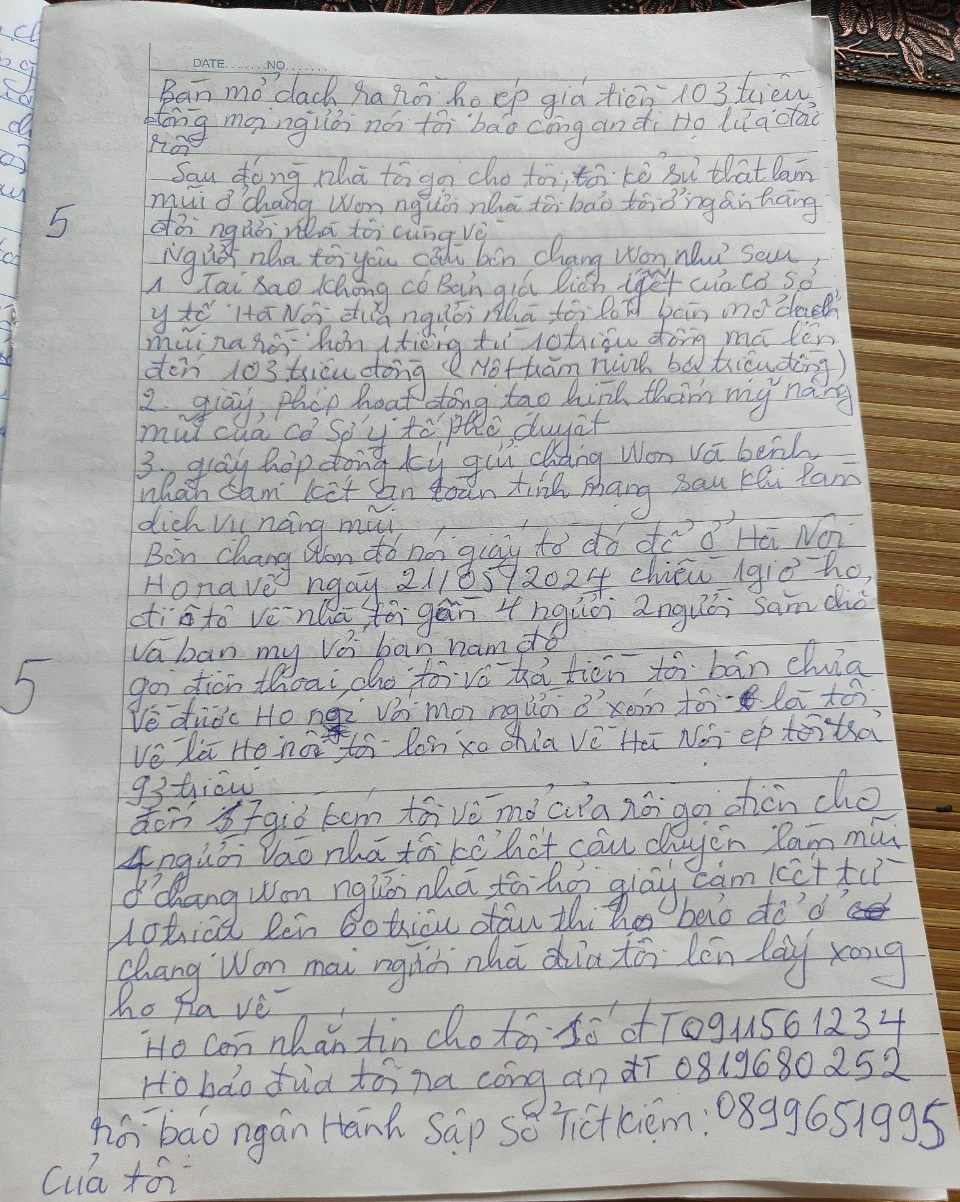 DATE.......NO.......
Bàn mổ dạch ra rồi họ ép giá tiền 103 triệu
đồng mọi người nói tôi báo công an đi Họ lừa đảo
rồi
Sau đó ng nhà tôi gọi cho tôi, tôi kể sự thật làm
mũi ở chang Won người nhà tôi bảo tôi ở ngân hàng
đời người nhà tôi cùng về
Người nhà tôi yêu cầu bên chang Won như sau,
1. Tai sao không có Bản giá liên iết của cơ Sở
y tế Hà Nội đưa người nhà tôi lên bàn mổ dạch
mũi ra rồi hơn 1 tiếng từ 10 triệu đồng mà lên
đến 103 triệu đồng (Một trăm ninh ba triệu đồng)
2. giấy phép hoạt động tạo hình thẩm mỹ nâng
mũi của cơ Sở y tế phê duyệt
3. giấy hợp đồng ký gửi chang Won và bệnh
nhân cam kết an toàn tính mạng sau khi làm
dịch vụ nâng mũi
Bên chang Won đó nói giấy tờ đó để ở Hà Nội
Họ ra về ngày 21/05/2024 chiều 1 giờ họ,
đi ô tô về nhà tôi gần 4 người 2 người săm chổ
và bạn my với bạn nam đó
gọi điện thoại cho tôi về trả tiền tôi bận chưa
về được Họ với mọi người ở xóm tôi là tôi
về là Họ nói tôi lên xe đưa về Hà Nội ép tôi trả
93 triệu
đến 7 giờ kém tôi về mở cửa rồi gọi điện cho
4 người vào nhà tôi kể hết câu chuyện làm mũi
ở chang Won người nhà tôi hỏi giấy cam kết từ
10 triệu lên 60 triệu đâu thì họ bảo để ở
chang Won mai người nhà đưa tôi lên lấy xong
họ ra về
Họ còn nhắn tin cho tôi Số đT 0911561234
Họ bảo đưa tôi ra công an đT 0819680252
rồi báo ngân Hành Sập Sổ Tiết kiệm: 0899651995
của tôi
5
5